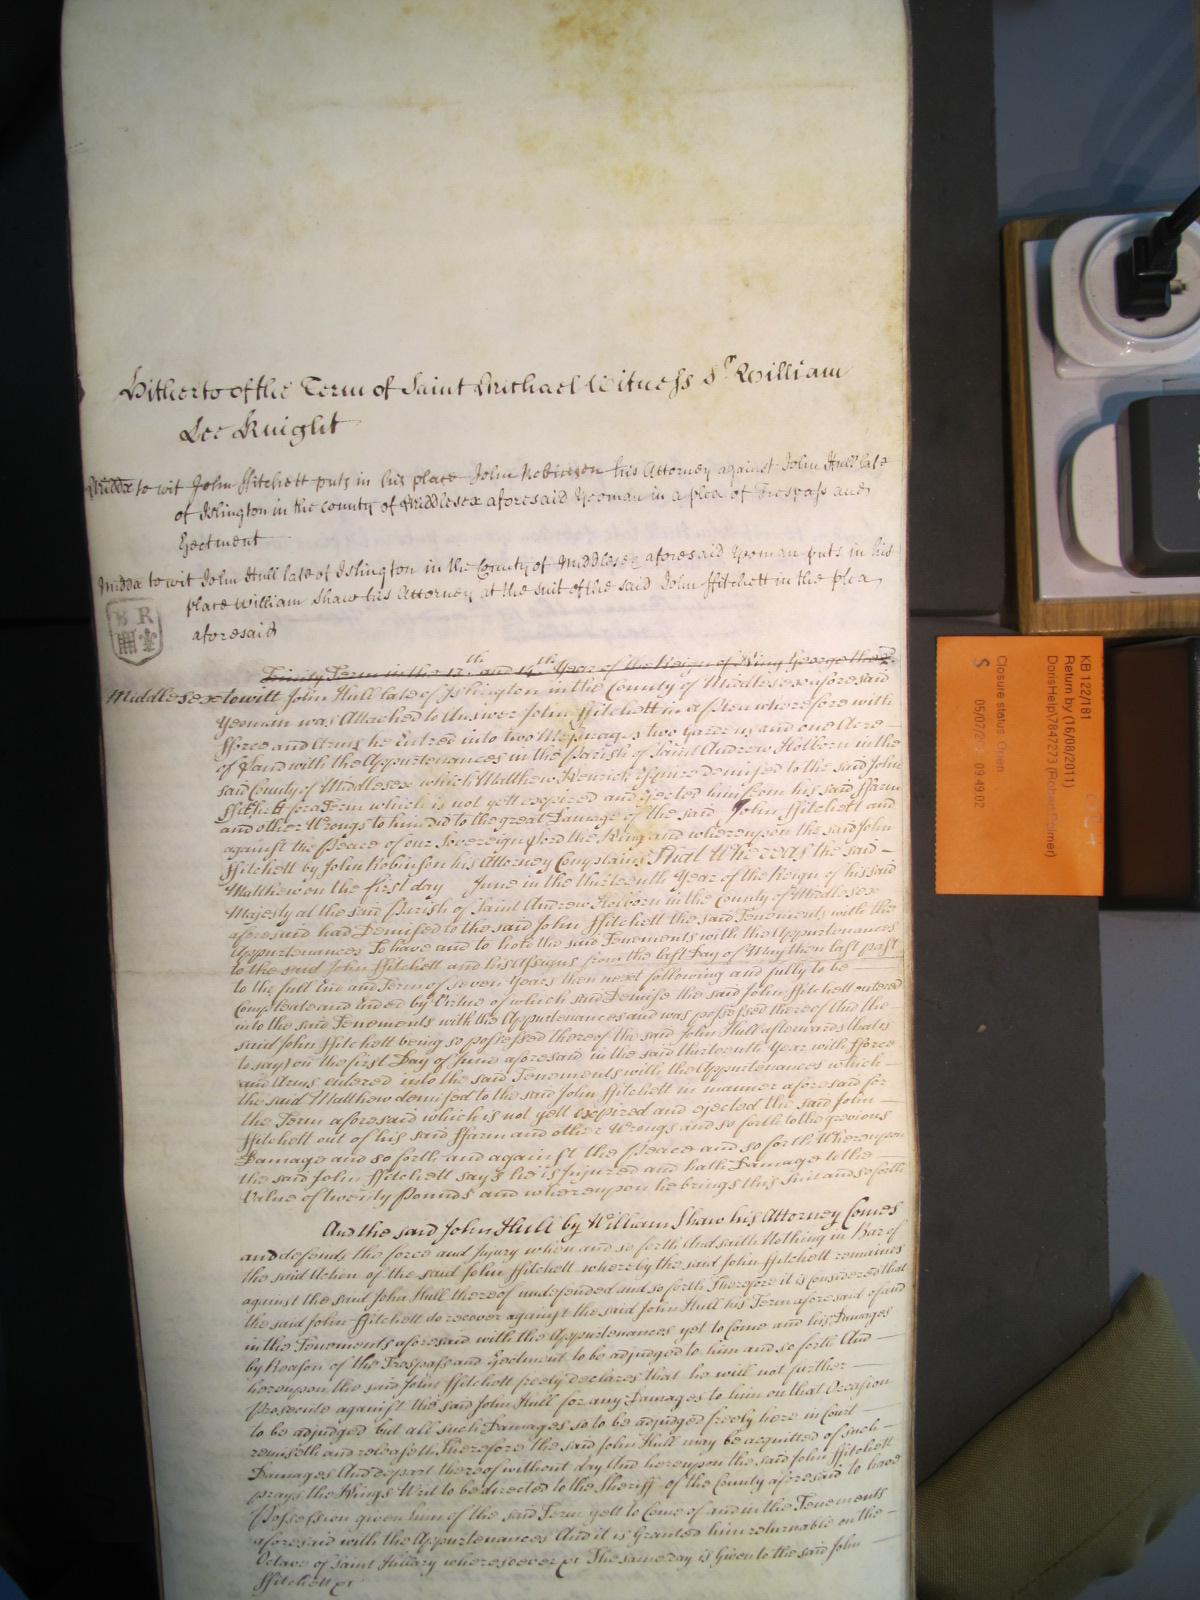 Hitherto of the Term of Saint Michael Witness Sr William
Lee Knight
Middx to wit John Ffitchett puts in his place John Robinson his Attorney against John Hull late
of Islington in the County of Middlesex aforesaid Yeoman in a plea of Trespass and
Ejectment
Middx to wit John Hull late of Islington in the County of Middlesex aforesaid Yeoman puts in his
place William Shaw his Attorney at the suit of the said John Ffitchett in the plea
aforesaid
P R
Trinity Term in the 13th and 14th Year of the Reign of King George the 2d
Middlesex to witt John Hull late of Islington in the County of Middlesex aforesaid
Yeoman was Attached to Answer John Ffitchett in a Plea wherefore with
fforce and Arms he Entred into two Messuages two Gardens and one Acre
of Land with the Appurtenances in the Parish of Saint Andrew Holborn in the
said County of Middlesex which Matthew Kenrick Esquire demised to the said John
Ffitchett for a Term which is not yett expired and ejected him from his said ffarm
and other Wrongs to him did to the great Damage of the said John Ffitchett and
against the Peace of our Sovereign Lord the King and whereupon the said John
Ffitchett by John Robinson his Attorney Complains That Whereas the said
Matthew on the first day June in the thirteenth Year of the Reign of his said
Majesty at the said Parish of Saint Andrew Holborn in the County of Middlesex
aforesaid had Demised to the said John Ffitchett the said Tenements with the
Appurtenances To have and to hold the said Tenements with the Appurtenances
to the said John Ffitchett and his Assigns from the last Day of May then last past
to the full End and Term of seven Years then next following and fully to be
Compleate and Ended by Virtue of which said Demise the said John Ffitchett entered
into the said Tenements with the Appurtenances and was possessed thereof And the
said John Ffitchett being so possessed thereof the said John Hull afterwards that is
to say) on the first Day of June aforesaid in the said thirteenth Year with fforce
and Arms entered into the said Tenements with the Appurtenances which
the said Matthew demised to the said John Ffitchett in manner aforesaid for
the Term aforesaid which is not yett expired and ejected the said John
Ffitchett out of his said ffarm and other Wrongs and so forth to the grevious
Damage and so forth and against the Peace and so forth Whereupon
the said John Ffitchett says he is Injured and hath Damage to the
Value of twenty Pounds and whereupon he brings this Suit and so forth
And the said John Hull by William Shaw his Attorney Comes
and defends the force and Injury when and so forth And saith Nothing in Bar of
the said Action of the said John Ffitchett whereby the said John Ffitchett remaines
against the said John Hull thereof undefended and so forth Therefore it is Considered that
the said John Ffitchett do recover against the said John Hull his Term aforesaid of and
in the Tenements aforesaid with the Appurtenances yet to Come and his Damages
by Reason of the Trespass and Ejectment to be adjudged to him and so forth And
hereupon the said John Ffitchett freely declares that he will not further
Prosecute against the said John Hull for any Damages to him on that Occasion
to be adjudged but all such Damages so to be adjudged freely here in Court
remiseth and releaseth Therefore the said John Hull may be acquitted of such
Damages And depart thereof without day And hereupon the said John Ffitchett
prays the Kings Writ to be directed to the Sheriff of the County aforesaid to have
Possession given him of the said Term yett to Come of and in the Tenements
aforesaid with the Appurtenances And it is Granted him returnable on the
Octave of Saint Hillary wheresoever &c The same day is Given to the said John
Ffitchett &c
KB 122/181
Return by (16/08/2011)
DorisHelp\7847273
Closure status: Open
S 05/07/20 09:49:02